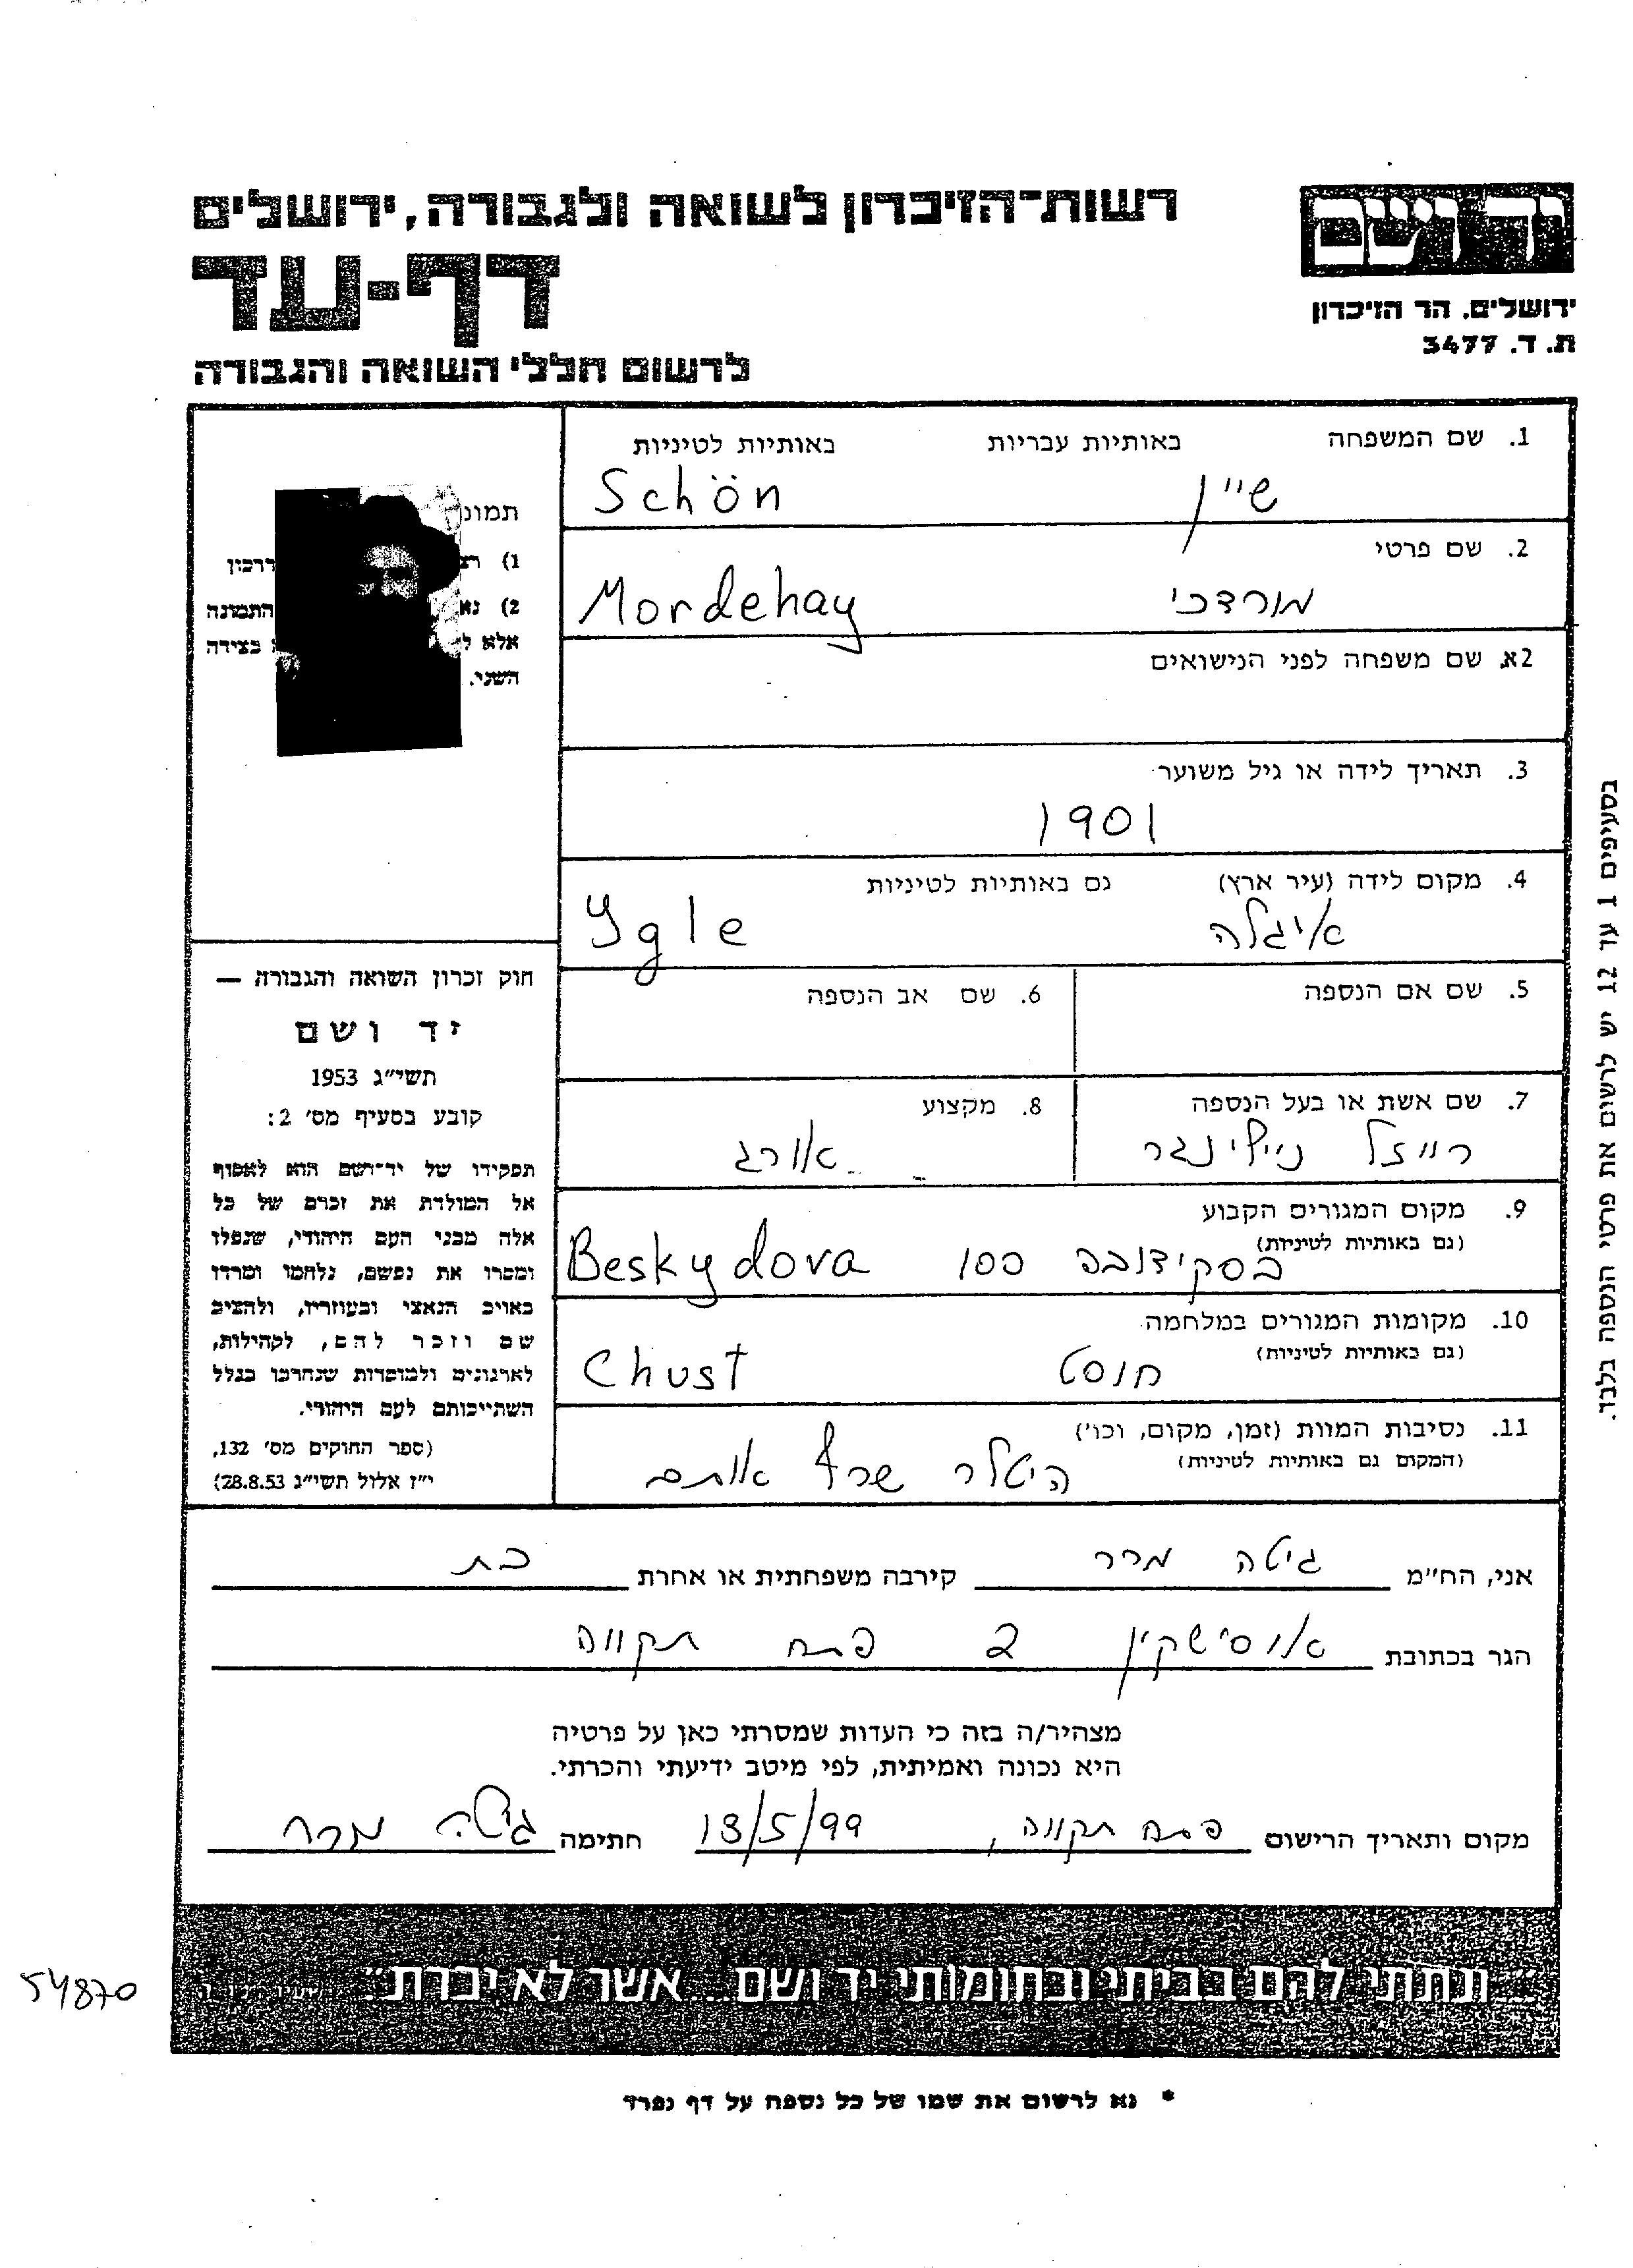 רשות־הזיכרון לשואה ולגבורה, ירושלים
דף-עד
לרשום חללי השואה והגבורה
יד ושם
ירושלים. הר הזיכרון
ת. ד. 3477
תמונ
1) רצ דרכון
2) נא התמונה
אלא ל בצידה
השני.
1. שם המשפחה באותיות עבריות באותיות לטיניות
שיין Schön
2. שם פרטי
מורדכי Mordehay
2א. שם משפחה לפני הנישואים
3. תאריך לידה או גיל משוער
1901
4. מקום לידה (עיר ארץ) גם באותיות לטיניות
איגלה Ygle
5. שם אם הנספה 6. שם אב הנספה
7. שם אשת או בעל הנספה 8. מקצוע
רייזל אורג
9. מקום המגורים הקבוע
(גם באותיות לטיניות)
בסקידובה 100 Beskydova
10. מקומות המגורים במלחמה
(גם באותיות לטיניות)
חוסט Chust
11. נסיבות המוות (זמן, מקום, וכו')
(המקום גם באותיות לטיניות)
היטלר שרף אותם
חוק זכרון השואה והגבורה —
יד ושם
תשי״ג 1953
קובע בסעיף מס׳ 2:
תפקידו של יד־ושם הוא לאסוף
אל המולדת את זכרם של כל
אלה מבני העם היהודי, שנפלו
ומסרו את נפשם, נלחמו ומרדו
באויב הנאצי ובעוזריו, ולהציב
שם וזכר להם, לקהילות,
לארגונים ולמוסדות שנחרבו בגלל
השתייכותם לעם היהודי.
(ספר החוקים מס׳ 132,
י״ז אלול תשי״ג 28.8.53)
אני, הח״מ גיטה קירבה משפחתית או אחרת בת
הגר בכתובת אוסישקין 2 פתח תקווה
מצהיר/ה בזה כי העדות שמסרתי כאן על פרטיה
היא נכונה ואמיתית, לפי מיטב ידיעתי והכרתי.
מקום ותאריך הרישום פתח תקווה, 13/5/99 חתימה גיטה
״ונתתי להם בביתי ובחומותי יד ושם... אשר לא יכרת״
* נא לרשום את שמו של כל נספה על דף נפרד
בסעיפים 1 עד 12 יש לרשים את פרטי הנספה בלבד.
54870